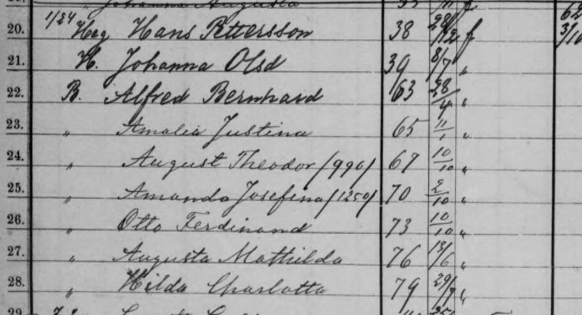 Johanna Augusta
20. 1/24 Heg Hans Pettersson 38 28/12 f
21. H. Johanna Olsd 39 8/7 "
22. B. Alfred Bernhard 63 28/4 "
23. " Amalia Justina 65 11/1 "
24. " August Theodor /990/ 67 10/10 "
25. " Amanda Josefina /1250/ 70 2/10 "
26. " Otto Ferdinand 73 10/10 "
27. " Augusta Mathilda 76 13/6 "
28. " Hilda Charlotta 79 29/7 "
29.